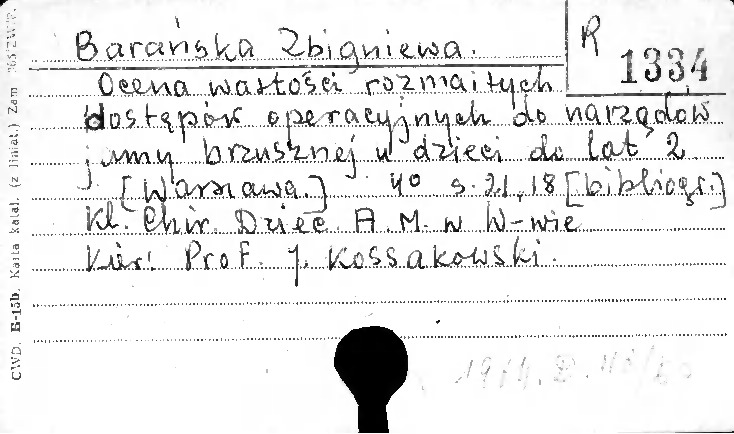 Barańska Zbigniewa.
R 1334
Ocena wartości rozmaitych
dostępów operacyjnych do narządów
jamy brzusznej u dzieci do lat 2
[Warszawa.] 4° s. 21, 18 [bibliogr.]
Kl. Chir. Dziec. A. M. w W-wie
Kier: Prof. J. Kossakowski.
CWD. E-15b. Karta katal. (z liniat.) Zam